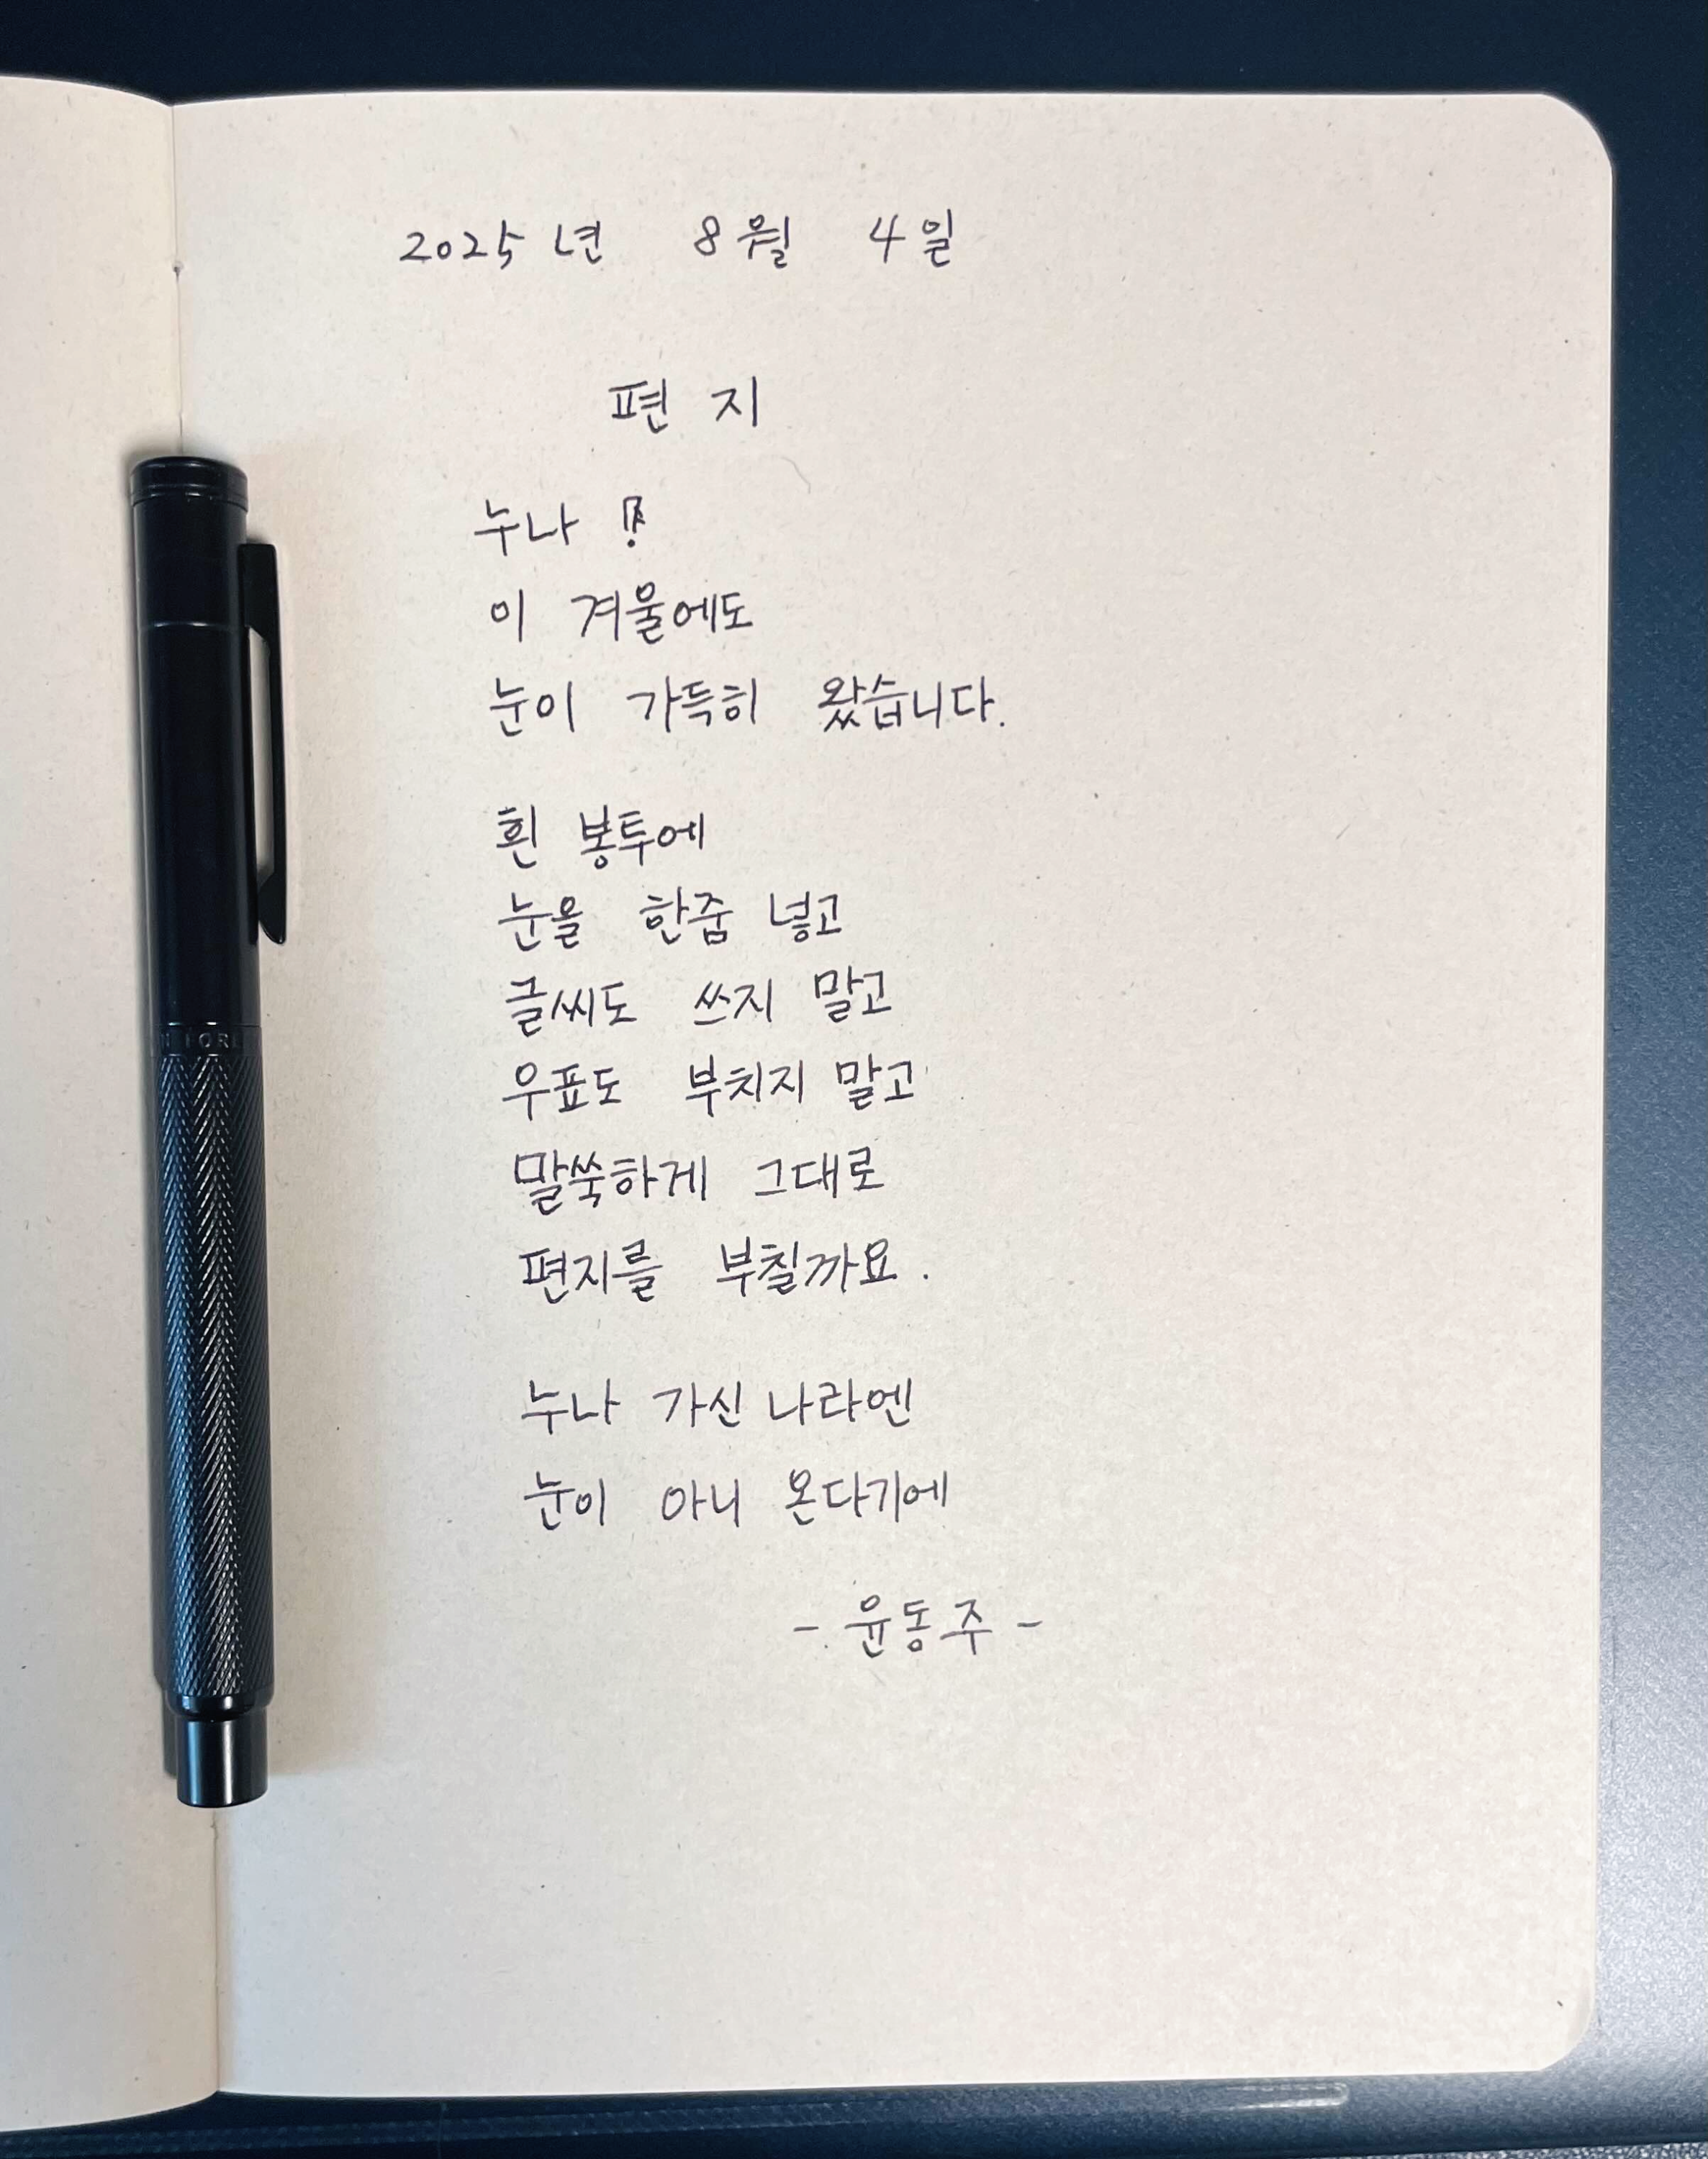 2025년 8월 4일
편지
누나!
이 겨울에도
눈이 가득히 왔습니다.
흰 봉투에
눈을 한줌 넣고
글씨도 쓰지 말고
우표도 부치지 말고
말쑥하게 그대로
편지를 부칠까요.
누나 가신 나라엔
눈이 아니 온다기에
- 윤동주 -